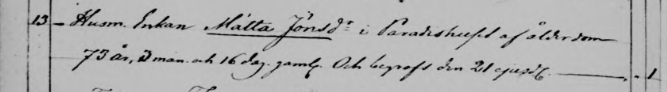 13 - Husm. Enkan Mätta Jönsdr i Paradishuset af ålderdom
73 år, 3 mån. och 16 dag. gaml. Och begrofs den 21 ejusd. - 1